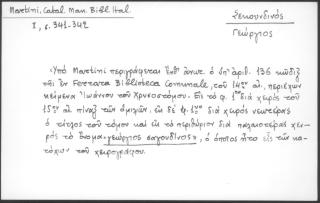 Martini, Catal. Man. Bibl. Ital.
I, σ. 341-342
Σεκουνδινός
Γεώργιος
Ὑπὸ Martini περιγράφεται ὁ ὑπ' ἀριθ. 136 κῶδιξ
τῆς ἐν Ferrara Biblioteca Comunale, τοῦ 14ου αἰ. περιέχων
κείμενα Ἰωάννου τοῦ Χρυσοστόμου. Εἰς τὸ φ. 1 διὰ χειρὸς τοῦ
15ου αἰ. πίναξ τῶν ὁμιλιῶν, ἐν δὲ φ. 1 διὰ χειρὸς νεωτέρας
ὁ τίτλος τοῦ τόμου καὶ εἰς τὸ περιθώριον διὰ παλαιοτέρας χει-
ρὸς τὸ ὄνομα "γεώργιος σαγουδινος", ὁ ὁποῖος ἦτο εἷς τῶν κα-
τόχων τοῦ χειρογράφου.